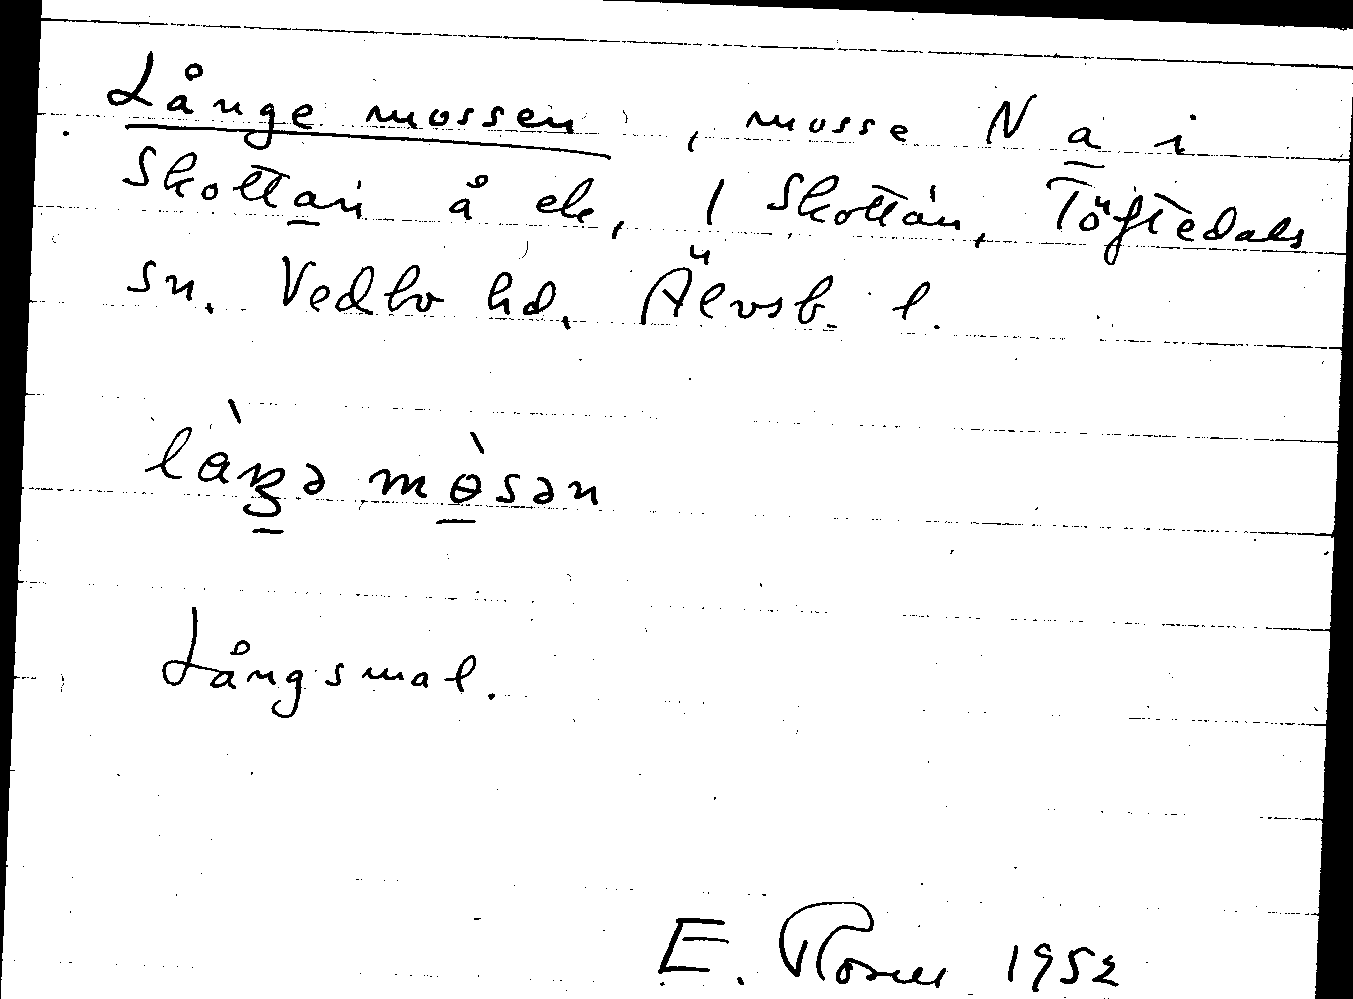 Långe mossen, mosse N a i
Skottan å ek, 1 Skottån, Töftedals
sn. Vedbo hd. Älvsb. l.
làŋə mɵ̀sən
Långsmal.
E. 1952